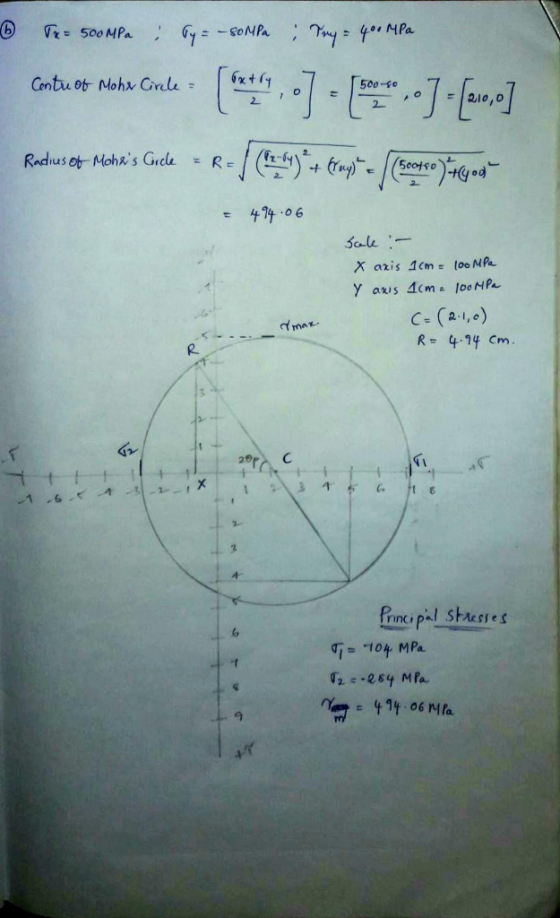 (b) σx = 500 MPa ; σy = -80MPa ; τxy = 400 MPa
Centre of Mohr Circle = [σx+σy/2 , 0] = [500-80/2 , 0] = [210,0]
Radius of Mohr's Circle = R = √((σx-σy/2)² + (τxy)²) = √((500+80/2)² + (400)²)
= 494.06
Scale :-
X axis 1cm = 100MPa
Y axis 1cm = 100MPa
C = (2.1,0)
R = 4.94 cm.
τmax.
5
R
4
3
2
1
σ2
2θp
C
σ1
-σ
σ
-7 -6 -5 -4 -3 -2 -1 X 1 2 3 4 5 6 7 8
1
2
3
4
5
6
7
8
9
+τ
Principal Stresses
σ1 = 704 MPa
σ2 = -284 MPa
τm = 494.06 MPa